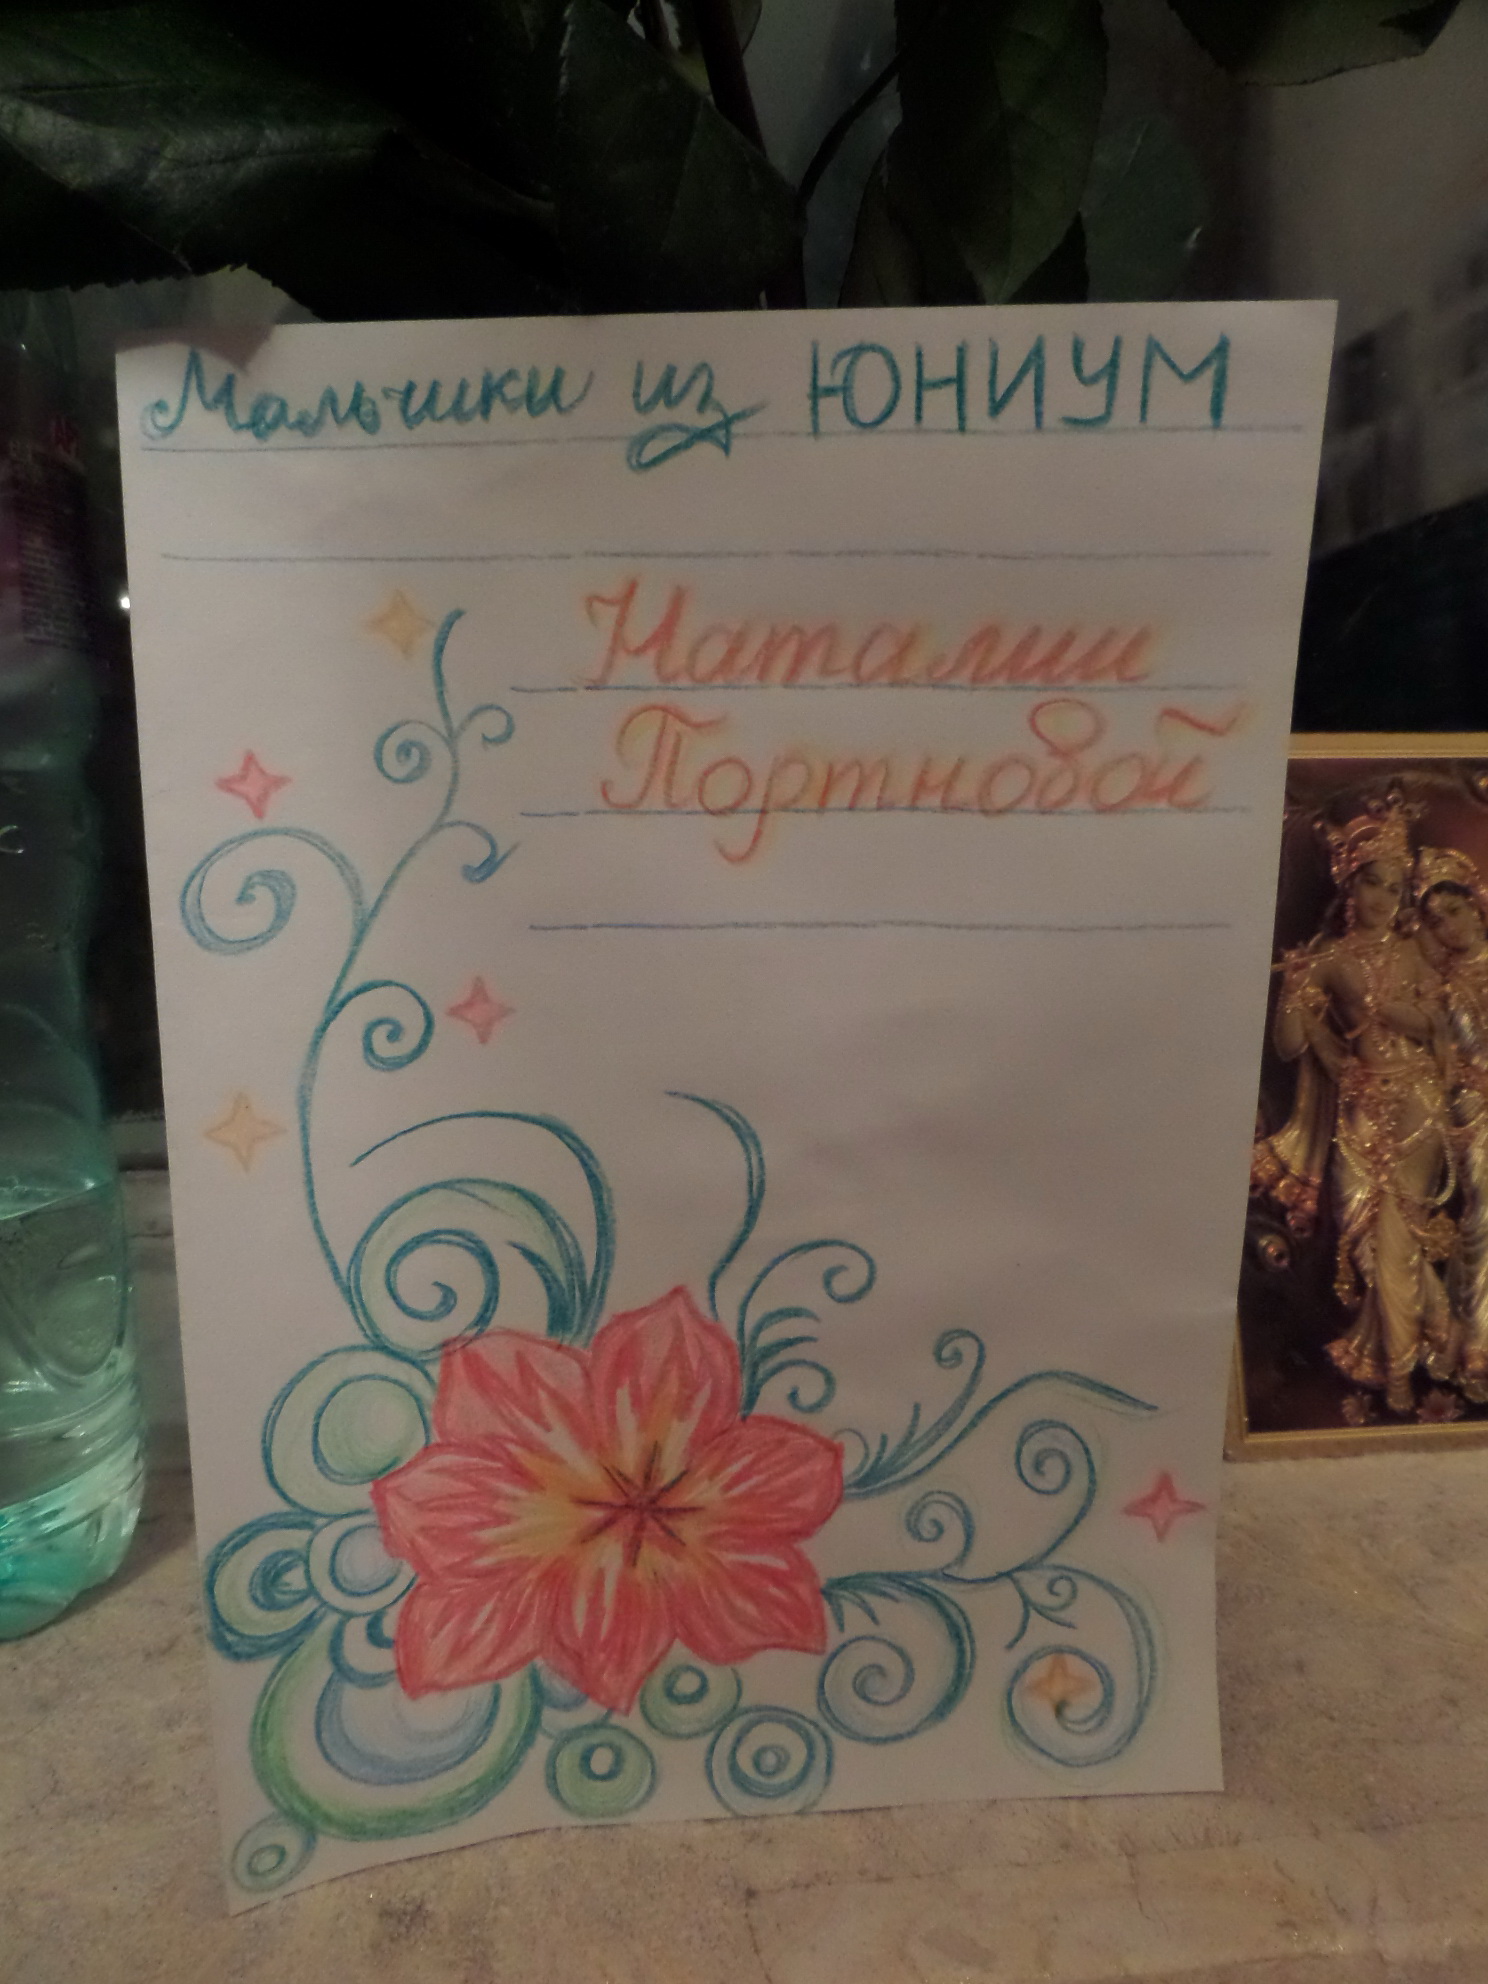 Мальчики из ЮНИУМ
Наталии
Портновой